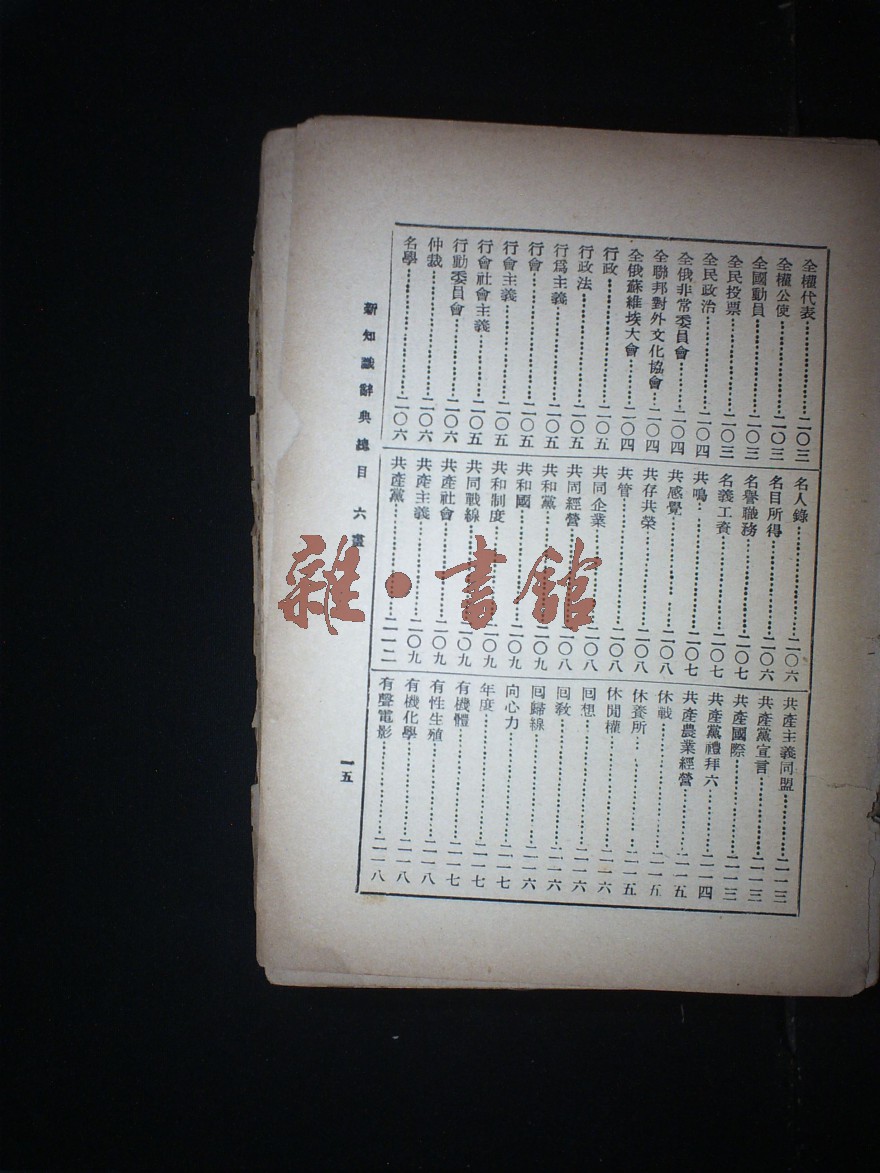 全權代表……………二〇三
全權公使……………二〇三
全國動員……………二〇三
全民投票……………二〇三
全民政治……………二〇四
全俄非常委員會……二〇四
全聯邦對外文化協會…二〇四
全俄蘇維埃大會……二〇四
行政…………………二〇五
行政法………………二〇五
行爲主義……………二〇五
行會…………………二〇五
行會主義……………二〇五
行會社會主義………二〇五
行動委員會…………二〇六
仲裁…………………二〇六
名學…………………二〇六
名人錄………………二〇六
名目所得……………二〇六
名譽職務……………二〇七
名義工資……………二〇七
共鳴…………………二〇七
共感覺………………二〇八
共存共榮……………二〇八
共管…………………二〇八
共同企業……………二〇八
共同經營……………二〇八
共和黨………………二〇九
共和國………………二〇九
共和制度……………二〇九
共同戰線……………二〇九
共產社會……………二〇九
共產主義……………二〇九
共產黨………………二一二
共產主義同盟………二一三
共產黨宣言…………二一三
共產國際……………二一三
共產黨禮拜六………二一四
共產農業經營………二一五
休戰…………………二一五
休養所………………二一五
休閒權………………二一六
回想…………………二一六
回教…………………二一六
回歸線………………二一六
向心力………………二一七
年度…………………二一七
有機體………………二一七
有性生殖……………二一八
有機化學……………二一八
有聲電影……………二一八
新知識辭典總目 六畫
一五
雜·書館